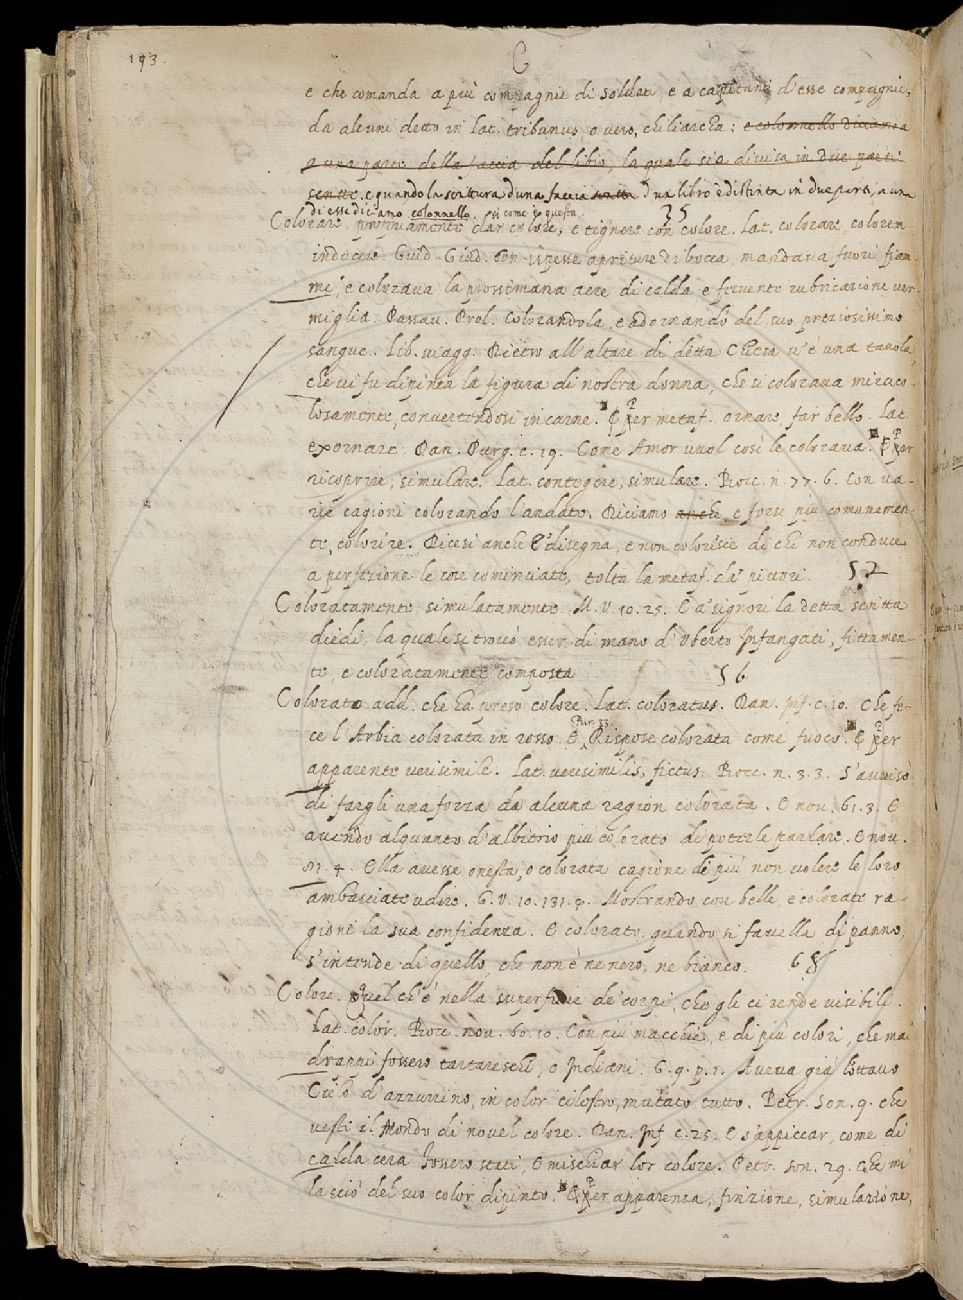 193.
C
e che comanda a più compagnie di soldati, e a capitani d'esse compagnie,
da alcuni detto in lat. tribunus, o vero, chiliarcha: e colonnello diciamo a
una parte della faccia del libro, la quale sia divisa in due parti
scritte. e quando la scrittura d'una faccia d'un libro è distinta in due parti, a una
di esse diciamo colonnello, si come è questa.
35
Colorare. propriamente dar colore, e tignere con colore. Lat. colorare, colorem
inducere. Guid. Giud. Con ispesse apriture di bocca, mandava fuori fiam-
me, e colorava la prossimana aere di calda e fervente rubricazione ver-
miglia. Passav. Prol. Colorandola, e adornando del suo preziosissimo
sangue. Lib. viagg. Dietro all'altare di detta Chiesa v'è una tavola
che vi fu dipinta la figura di nostra donna, che si colorava miraco-
losamente, convertendosi in carne. E per metaf. ornare, far bello. Lat.
exornare. Dan. Purg. c. 19. Come Amor vuol così le colorava. E per
ricoprire, simulare. Lat. contegere, simulare. Bocc. n. 77. 6. Con va-
rie cagioni colorando l'andate. Diciamo anche, e forse più comunemen-
te, colorire. Dicesi anche E' disegna, e non colorisce di chi non conduce
a perfezione le cose cominciate, tolta la metaf. da' pittori.
52
Coloratamente simulatamente. M. V. 10. 25. E a' signori la detta scritta
diedi, la quale si trovò esser di mano d'Uberto Infangati, fittamen-
te, e coloratamente composta
56
Colorato add. che ha preso colore. Lat. coloratus. Dan. Inf. c. 10. Che fe-
ce l'Arbia colorata in rosso E Pur. 33. Rispose colorata come fuoco. E per
apparente verisimile. Lat. verisimilis, fictus. Bocc. n. 3. 3. S'avvisò
di fargli una forza da alcuna ragion colorata. E nov. 61. 3. E
avendo alquanto d'albitrio più colorato di poterle parlare. E nov.
4. Ella avesse onesta, o colorata cagione di più non volere le loro
ambasciate udire. G. V. 10. 131. Mostrando con belle, e colorate ra-
gioni la sua confidenza. E colorato, quando si favella di panno,
s'intende di quello, che non è ne nero, ne bianco.
68
Colore. Quel ch'è nella superficie de' corpi, che gli ci rende visibili.
Lat. color. Bocc. nov. 60. 10. Con più macchie, e di più colori, che mai
drappi fossero tartareschi, o Indiani. G. 9. p. 1. Aveva già l'ottavo
Cielo d'azzurrino, in color cilestro, mutato tutto. Petr. Son. 9. che
vesti il Mondo di novel colore. Dan. Inf. c. 25. E s'appiccar, come di
calda cera fossero stati, E mischiar lor colore. Petr. Son. 29. Che mi
lasciò del suo color dipinto. E per apparenza, finzione, simulazione,